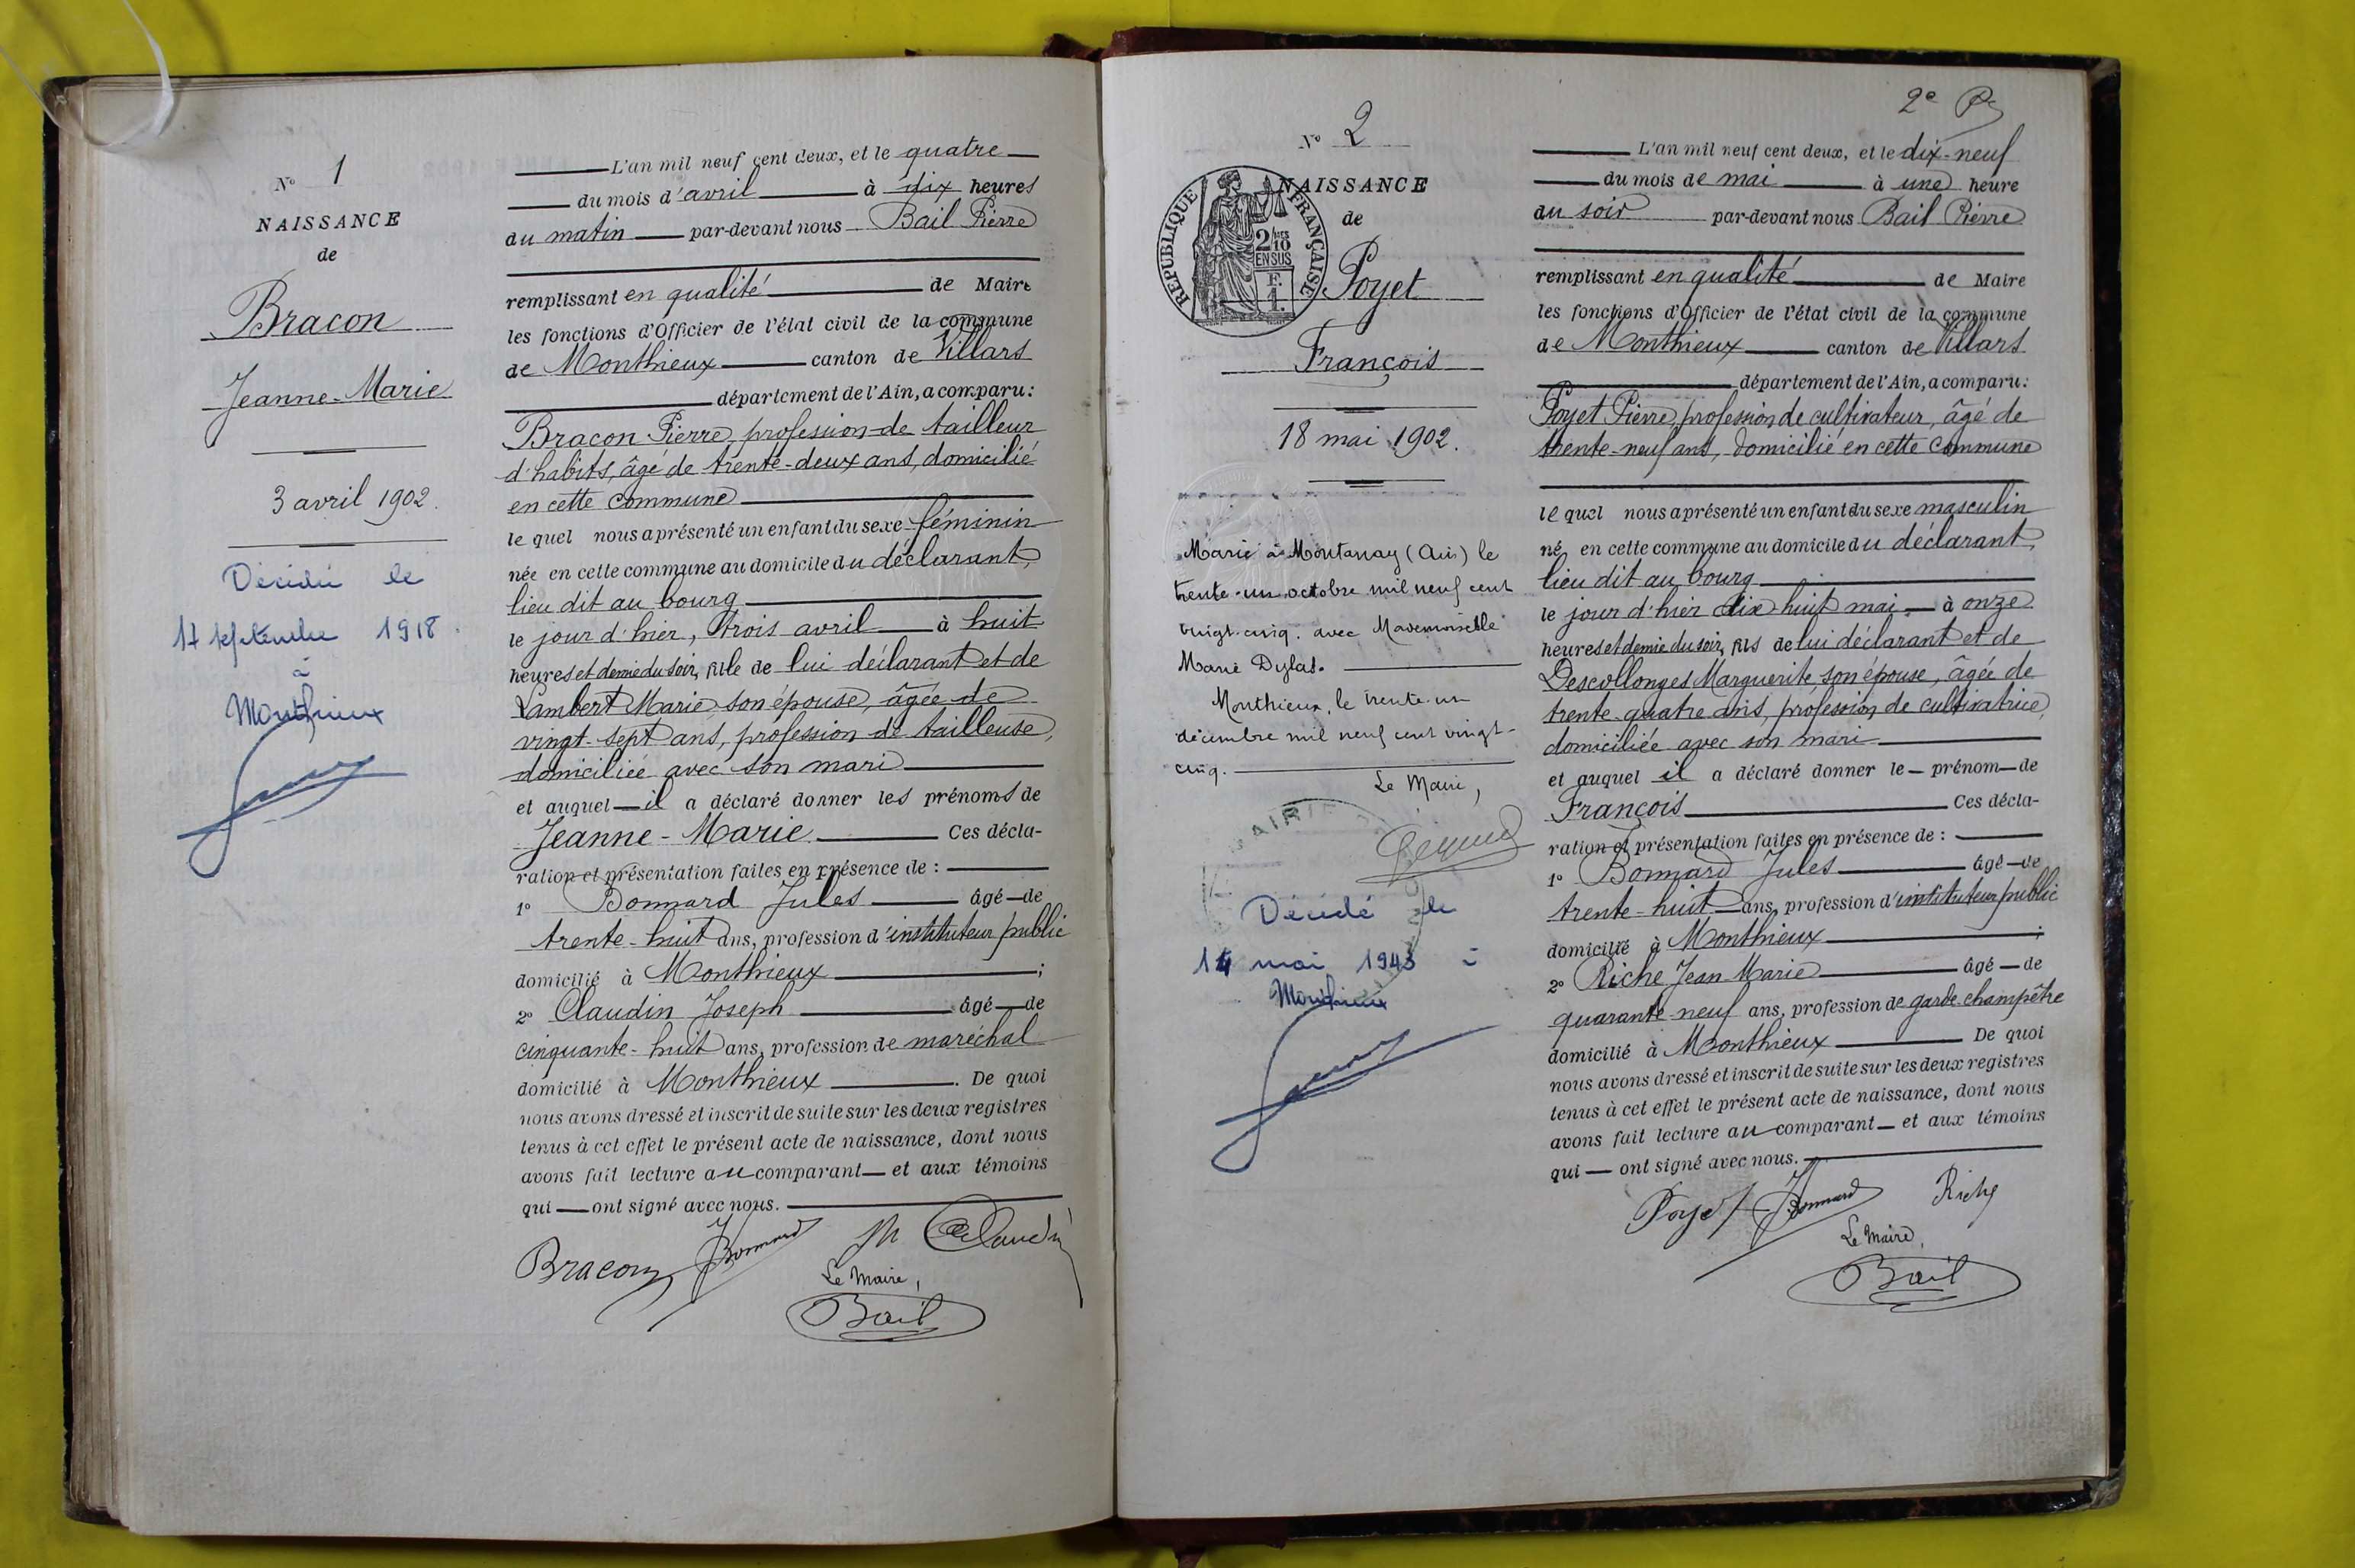 N° 1
NAISSANCE
de
Bracon
Jeanne-Marie
3 avril 1902.
Décédée le
17 septembre 1918.
à
Monthieux
L'an mil neuf cent deux, et le quatre
du mois d'avril à dix heures
du matin par-devant nous Bail Pierre
remplissant en qualité de Maire
les fonctions d'Officier de l'état civil de la commune
de Monthieux canton de Villars
département de l'Ain, a comparu :
Bracon Pierre, profession de tailleur
d'habits, âgé de trente-deux ans, domicilié
en cette commune
le quel nous a présenté un enfant du sexe féminin
née en cette commune au domicile du déclarant,
lieu dit au bourg
le jour d'hier, trois avril à huit
heures et demie du soir, fille de lui déclarant et de
Lambert Marie, son épouse, âgée de
vingt-sept ans, profession de tailleuse,
domiciliée avec son mari
et auquel il a déclaré donner les prénoms de
Jeanne-Marie. Ces décla-
ration et présentation faites en présence de :
1° Bonnard Jules âgé de
trente-huit ans, profession d'instituteur public
domicilié à Monthieux ;
2° Claudin Joseph âgé de
cinquante-huit ans, profession de maréchal
domicilié à Monthieux. De quoi
nous avons dressé et inscrit de suite sur les deux registres
tenus à cet effet le présent acte de naissance, dont nous
avons fait lecture au comparant et aux témoins
qui ont signé avec nous.
Bracon Bonnard Claudin
Le Maire,
Bail
2e
N° 2
NAISSANCE
de
Poyet
François
REPUBLIQUE FRANÇAISE
2/10
EN SUS
F.
1.
18 mai 1902.
Marié à Montanay (Ain) le
trente-un octobre mil neuf cent
vingt-cinq. avec Mademoiselle
Marie
Monthieux, le trente-un
décembre mil neuf cent vingt-
cinq.
Le Maire,
MAIRIE
Décédé le
14 mai 1943 à
Monthieux
L'an mil neuf cent deux, et le dix-neuf
du mois de mai à une heure
du soir par-devant nous Bail Pierre
remplissant en qualité de Maire
les fonctions d'Officier de l'état civil de la commune
de Monthieux canton de Villars
département de l'Ain, a comparu :
Poyet Pierre, profession de cultivateur, âgé de
trente-neuf ans, domicilié en cette commune
le quel nous a présenté un enfant du sexe masculin
né en cette commune au domicile du déclarant,
lieu dit au bourg
le jour d'hier dix-huit mai à onze
heures et demie du soir, fils de lui déclarant et de
Descollonges Marguerite, son épouse, âgée de
trente-quatre ans, profession de cultivatrice,
domiciliée avec son mari
et auquel il a déclaré donner le prénom de
François Ces décla-
ration et présentation faites en présence de :
1° Bonnard Jules âgé de
trente-huit ans, profession d'instituteur public
domicilié à Monthieux ;
2° Riche Jean Marie âgé de
quarante-neuf ans, profession de garde-champêtre
domicilié à Monthieux De quoi
nous avons dressé et inscrit de suite sur les deux registres
tenus à cet effet le présent acte de naissance, dont nous
avons fait lecture au comparant et aux témoins
qui ont signé avec nous.
Poyet Bonnard Riche
Le Maire,
Bail